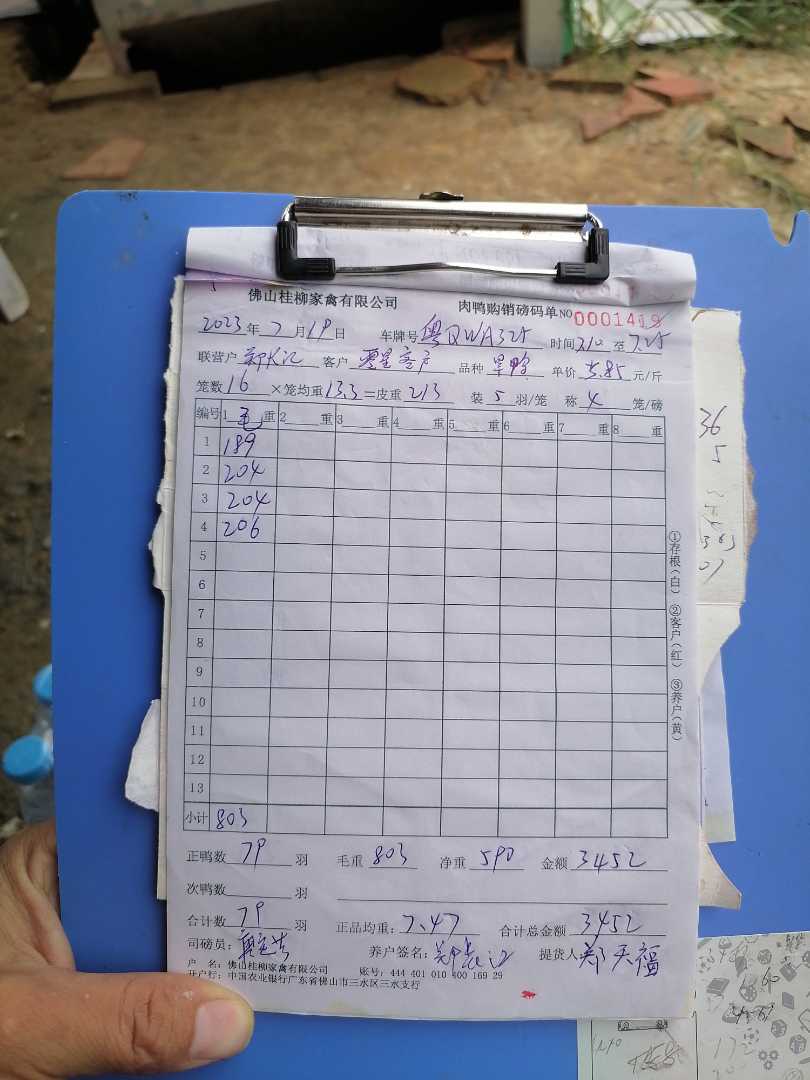 佛山桂柳家禽有限公司 肉鸭购销磅码单 NO 0001419
2023年7月19日 车牌号 粤QWA325 时间 7.10 至 7.25
联营户 郑长江 客户 零星客户 品种 旱鸭 单价 5.85 元/斤
笼数 16 ×笼均重 13.3 =皮重 213 装 5 羽/笼 称 4 笼/磅
编号 1 毛 重 2 重 3 重 4 重 5 重 6 重 7 重 8 重
1 189
2 204
3 204
4 206
5
6
7
8
9
10
11
12
13
小计 803
①存根(白) ②客户(红) ③养户(黄)
正鸭数 79 羽 毛重 803 净重 590 金额 3452
次鸭数 羽
合计数 79 羽 正品均重: 7.47 合计总金额 3452
司磅员: 养户签名: 郑长江 提货人 郑天福
户 名: 佛山桂柳家禽有限公司 账号: 444 401 010 400 169 29
开户行: 中国农业银行广东省佛山市三水区三水支行
36
5